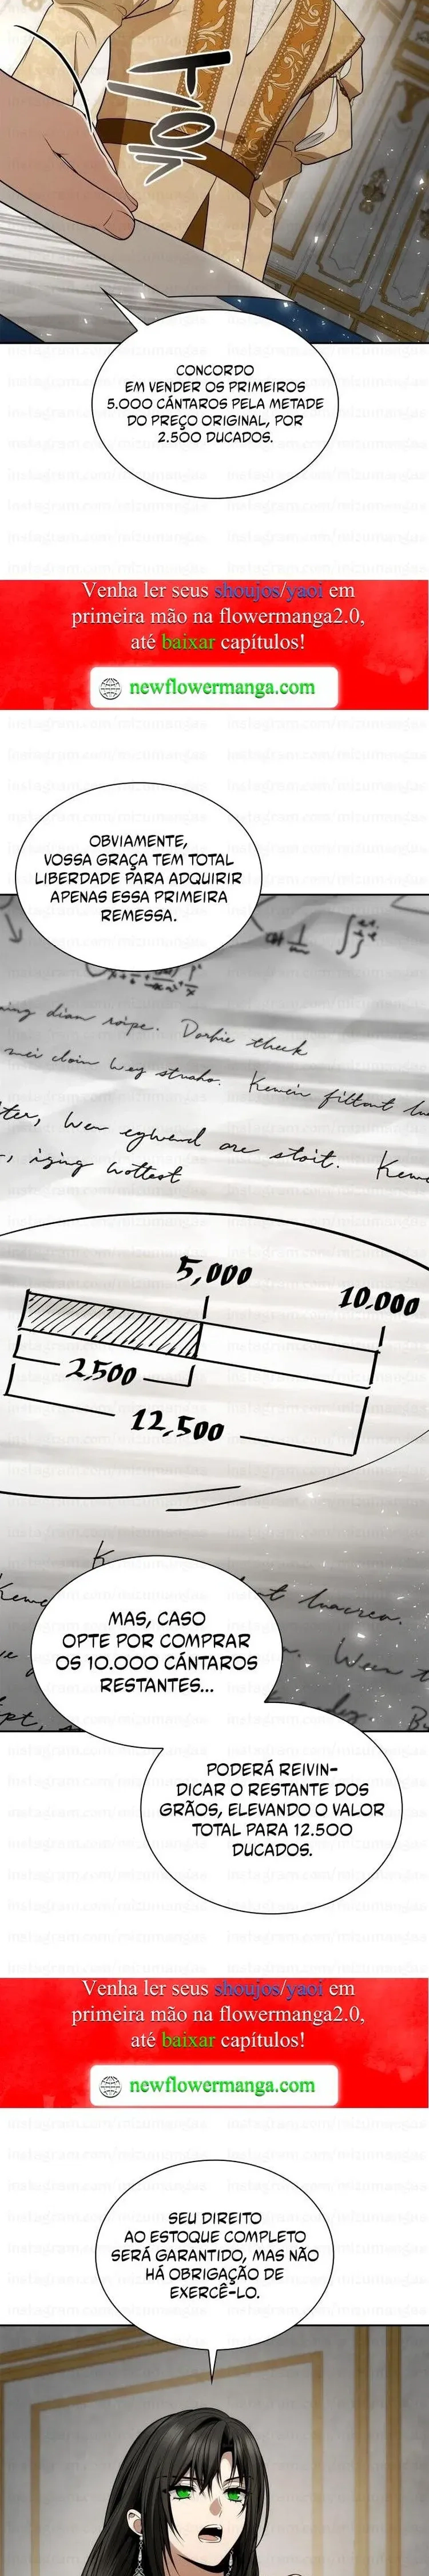 CONCORDO
EM VENDER OS PRIMEIROS
5.000 CÁNTAROS PELA METADE
DO PREÇO ORIGINAL, POR
2.500 DUCADOS.
Venha ler seus shoujos/yaoi em
primeira mão na flowermanga2.0,
até baixar capítulos!
newflowermanga.com
OBVIAMENTE,
VOSSA GRAÇA TEM TOTAL
LIBERDADE PARA ADQUIRIR
APENAS ESSA PRIMEIRA
REMESSA.
5,000
10,000
2,500
12,500
MAS, CASO
OPTE POR COMPRAR
OS 10.000 CÁNTAROS
RESTANTES...
PODERÁ REIVIN-
DICAR O RESTANTE DOS
GRÃOS, ELEVANDO O VALOR
TOTAL PARA 12.500
DUCADOS.
Venha ler seus shoujos/yaoi em
primeira mão na flowermanga2.0,
até baixar capítulos!
newflowermanga.com
SEU DIREITO
AO ESTOQUE COMPLETO
SERÁ GARANTIDO, MAS NÃO
HÁ OBRIGAÇÃO DE
EXERCÊ-LO.